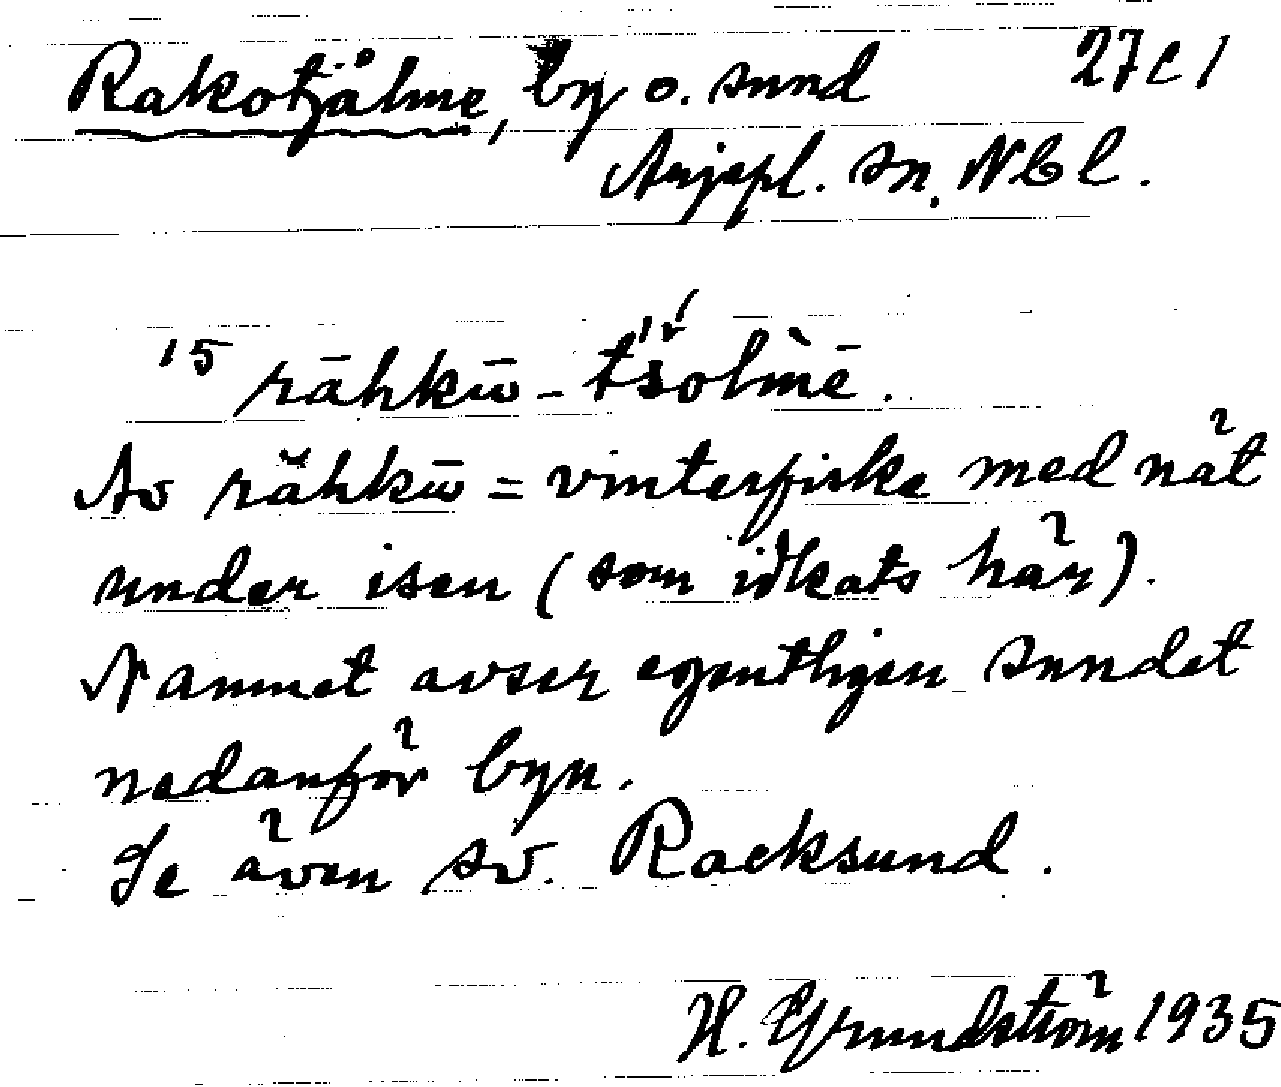 Rakotjålme, by o. sund 27c1
Arjepl. sn. Nbl.
15 rāhkɯ̄ - tšolmē.
Av rāhkɯ̄ = vinterfiske med nät
under isen (som idkats här).
Namnet avser egentligen sundet
nedanför byn.
Se även sv. Racksund.
H. Grundström 1935